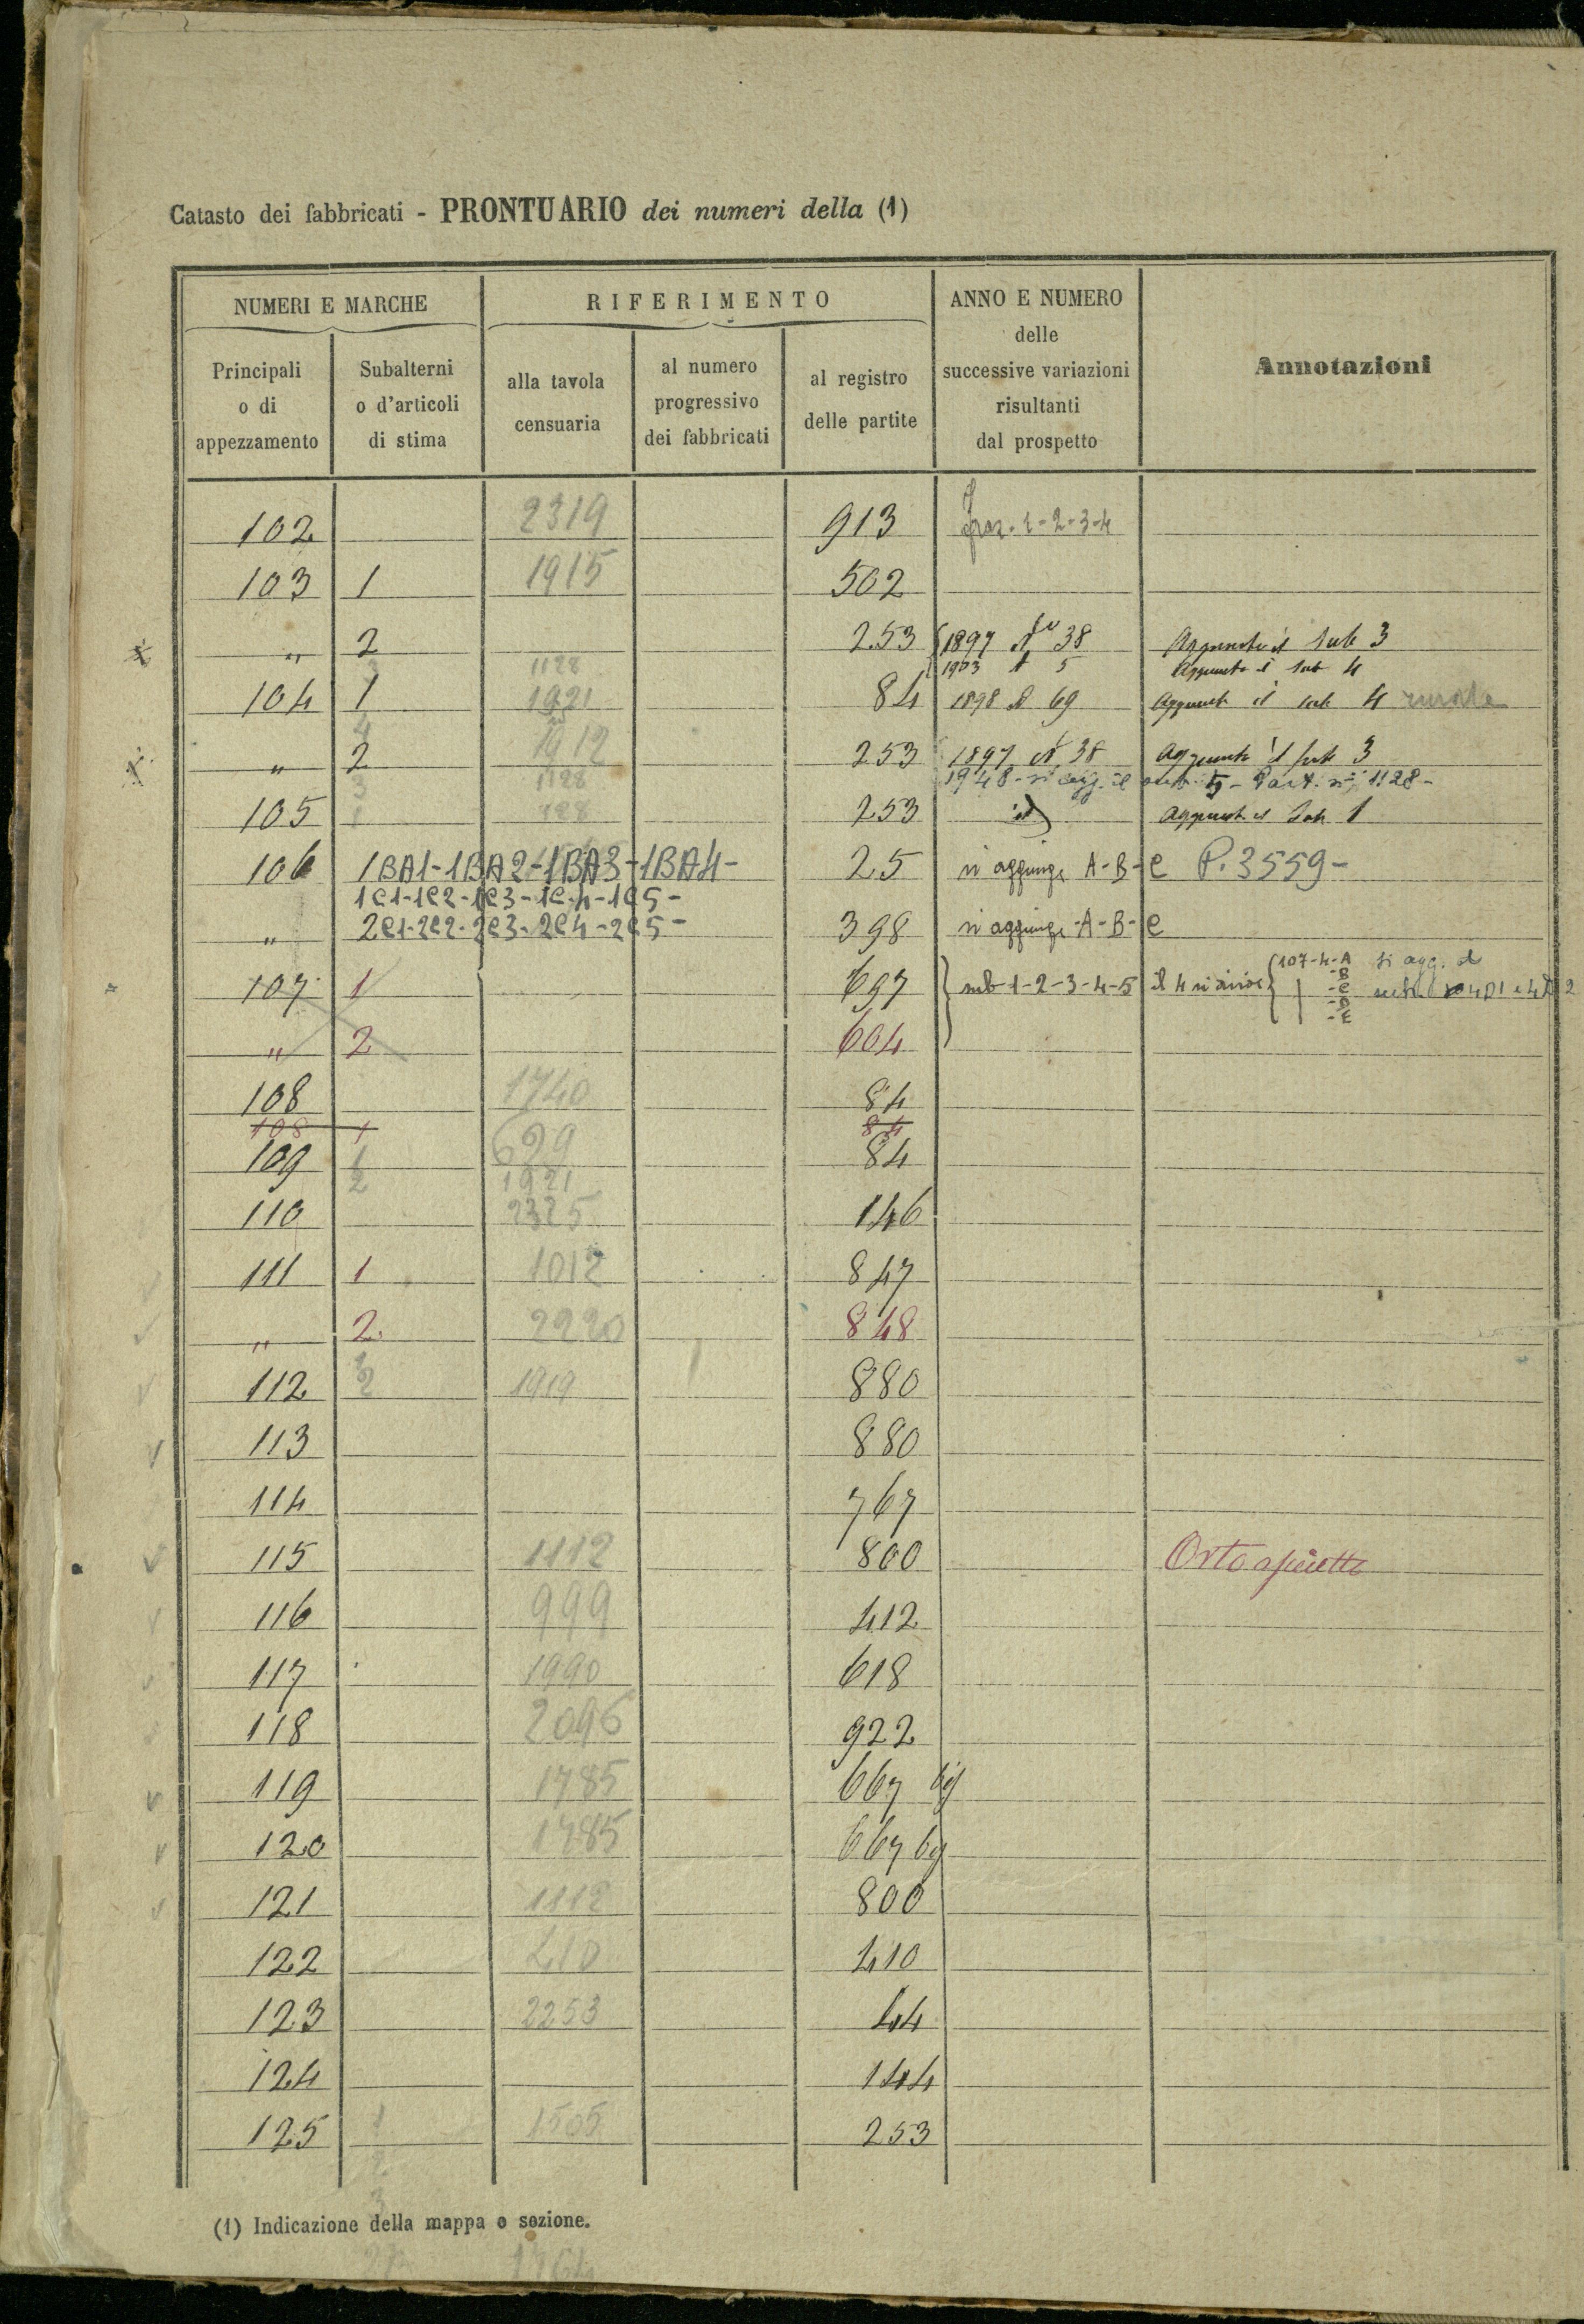 Catasto dei fabbricati - PRONTUARIO dei numeri della (1)
NUMERI E MARCHE
RIFERIMENTO
ANNO E NUMERO
delle
successive variazioni
risultanti
dal prospetto
Annotazioni
Principali
o di
appezzamento
Subalterni
o d'articoli
di stima
alla tavola
censuaria
al numero
progressivo
dei fabbricati
al registro
delle partite
102 2319 913 fraz. 1-2-3-4
103 1 1915 502
" 2 253 1897 N° 38 Aggiunto il Sub 3
3 1128 1903 N 5 Aggiunto il Sub 4
104 1 1921 84 1898 N 69 Aggiunto il sub 4 rurale
4
" 2 1912 253 1897 N 38 Aggiunto il sub 3
3 1128 1948 - si agg. il sub. 5 - Part. n° 1128 -
105 1 128 253 id Aggiunto il Sub 1
106 1BA1-1BA2-1BA3-1BA4- 25 si aggiunge A-B-C P. 3559-
1C1-1C2-1C3-1C4-1C5-
" 2C1-2C2-2C3-2C4-2C5- 398 si aggiunge -A-B-C
107 1 697 sub-1-2-3-4-5 il 4 si divide 107-4-A si agg. il
-B
-C
-D
-E
" 2 604
108 1740 84
108 1 84
109 1 699 84
2 1921
110 2325 146
111 1 1012 847
" 2 2220 848
1
112 2 1919 880
113 880
114 767
115 1112 800 Orto
116 999 412
117 1990 618
118 2096 922
119 1785 667 bis
120 1785 667 bis
121 1112 800
122 410 410
123 2253 44
124 144
125 1 1505 253
2
3
(1) Indicazione della mappa o sezione.
1764